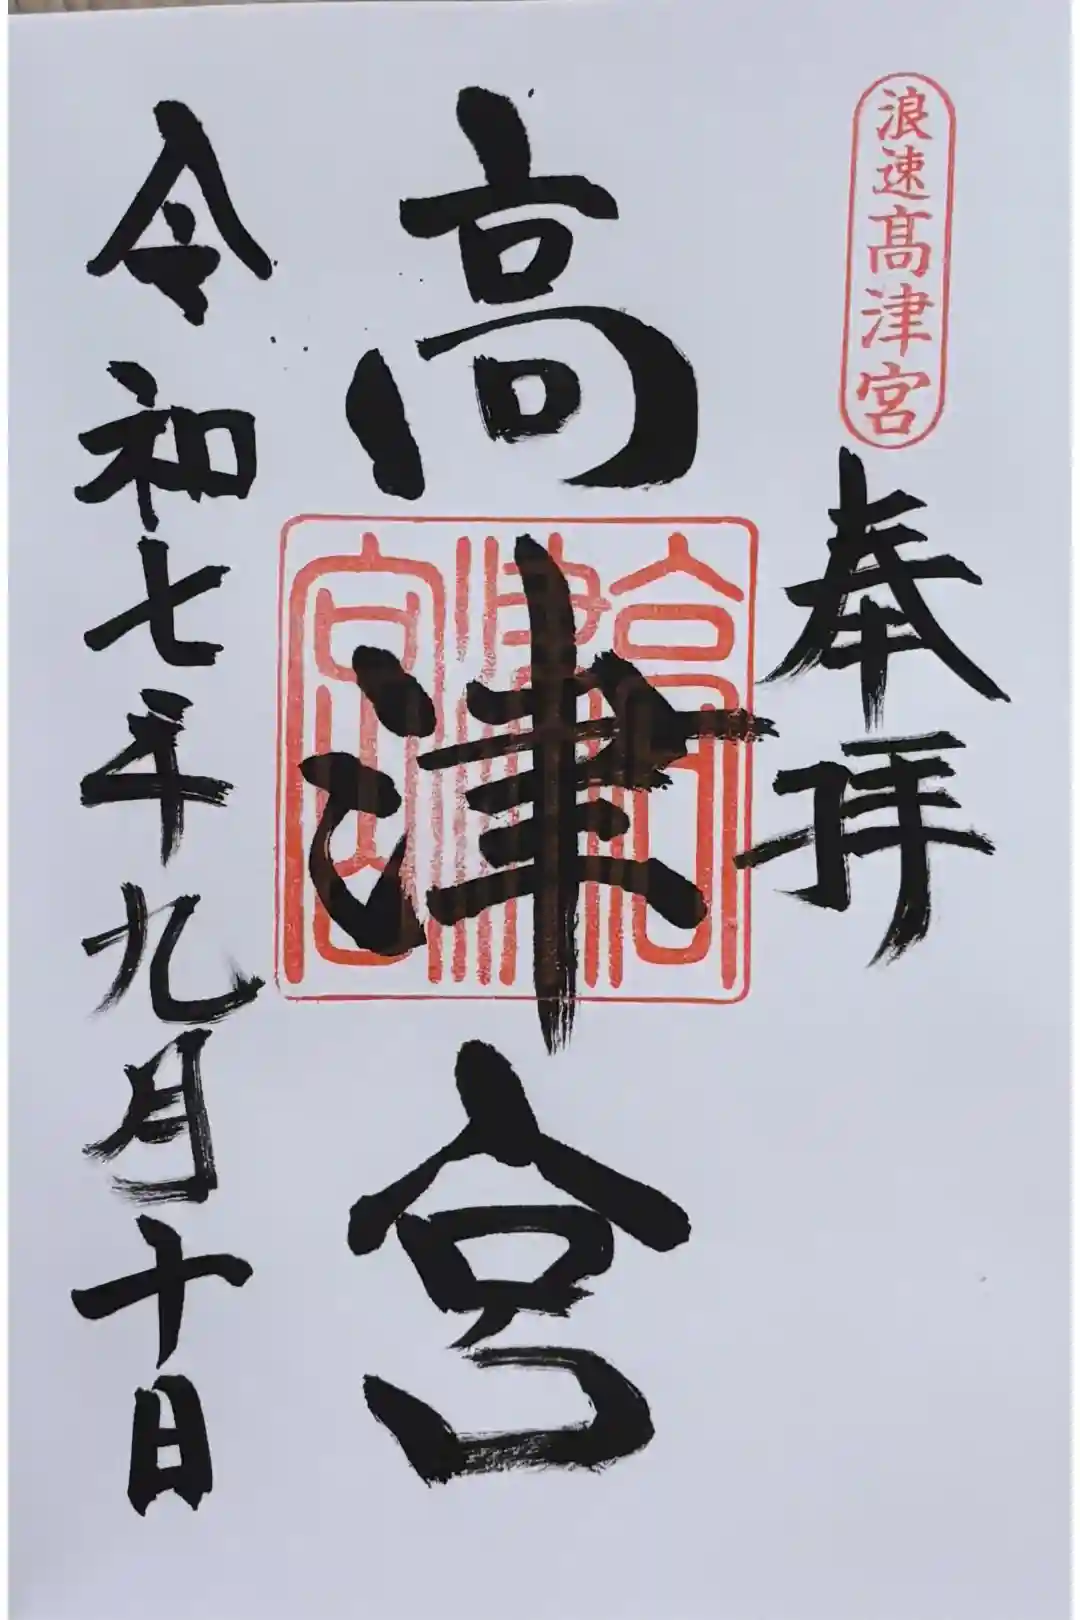 浪速髙津宮
奉拝
高津宮
高津宮
令和七年九月十日